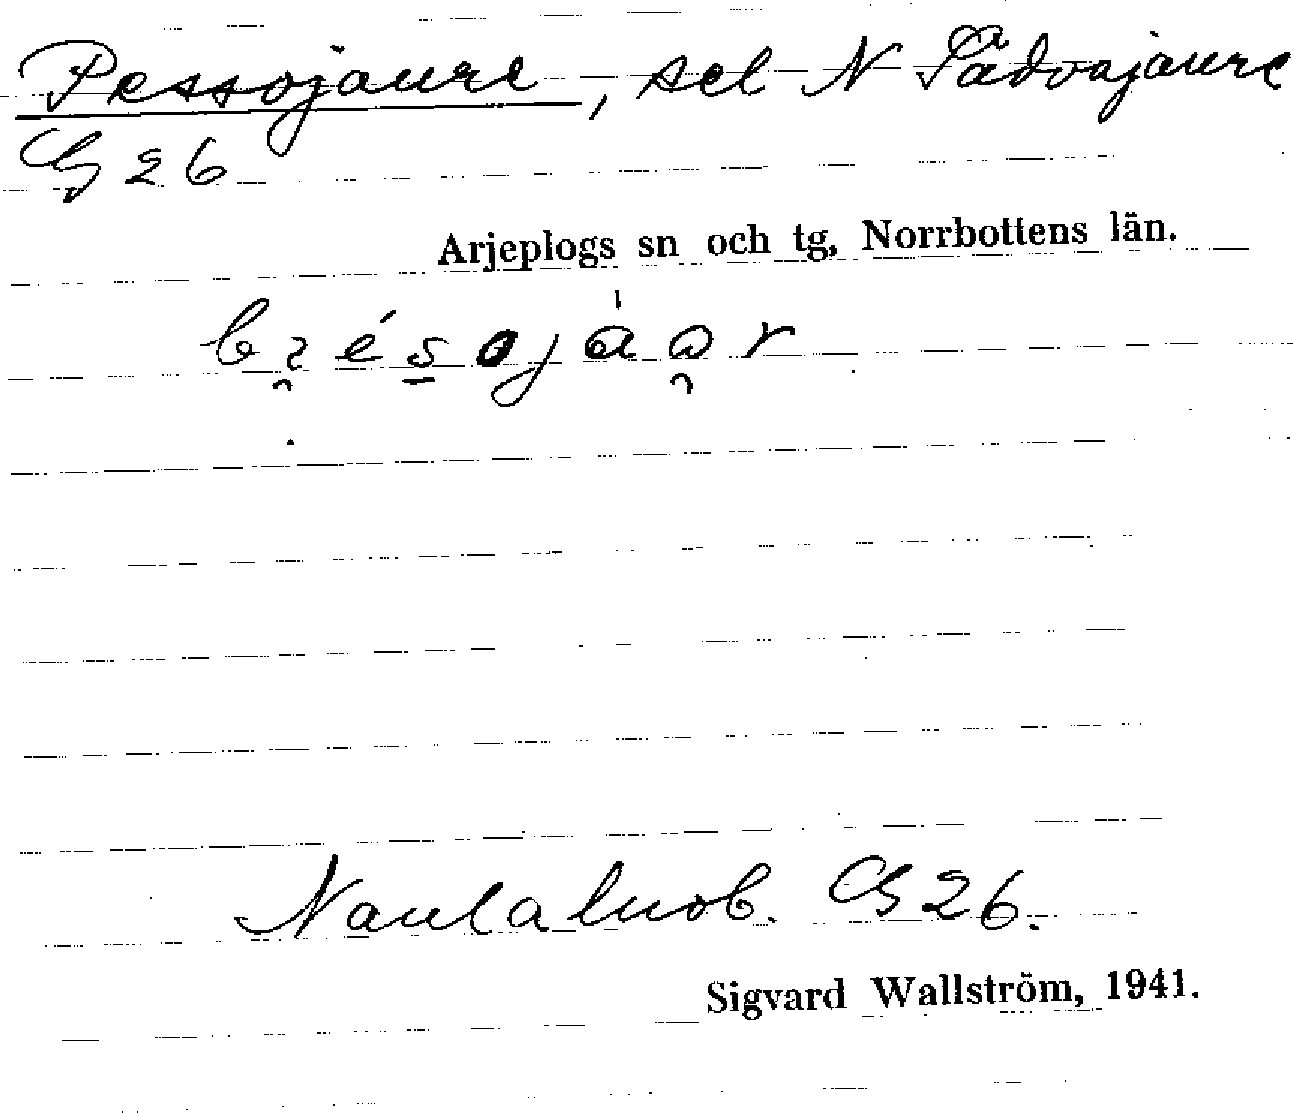 Pessojaure, sel N Pådvajaure
G 26
Arjeplogs sn och tg, Norrbottens län.
Naulaluob. G 26.
Sigvard Wallström, 1941.